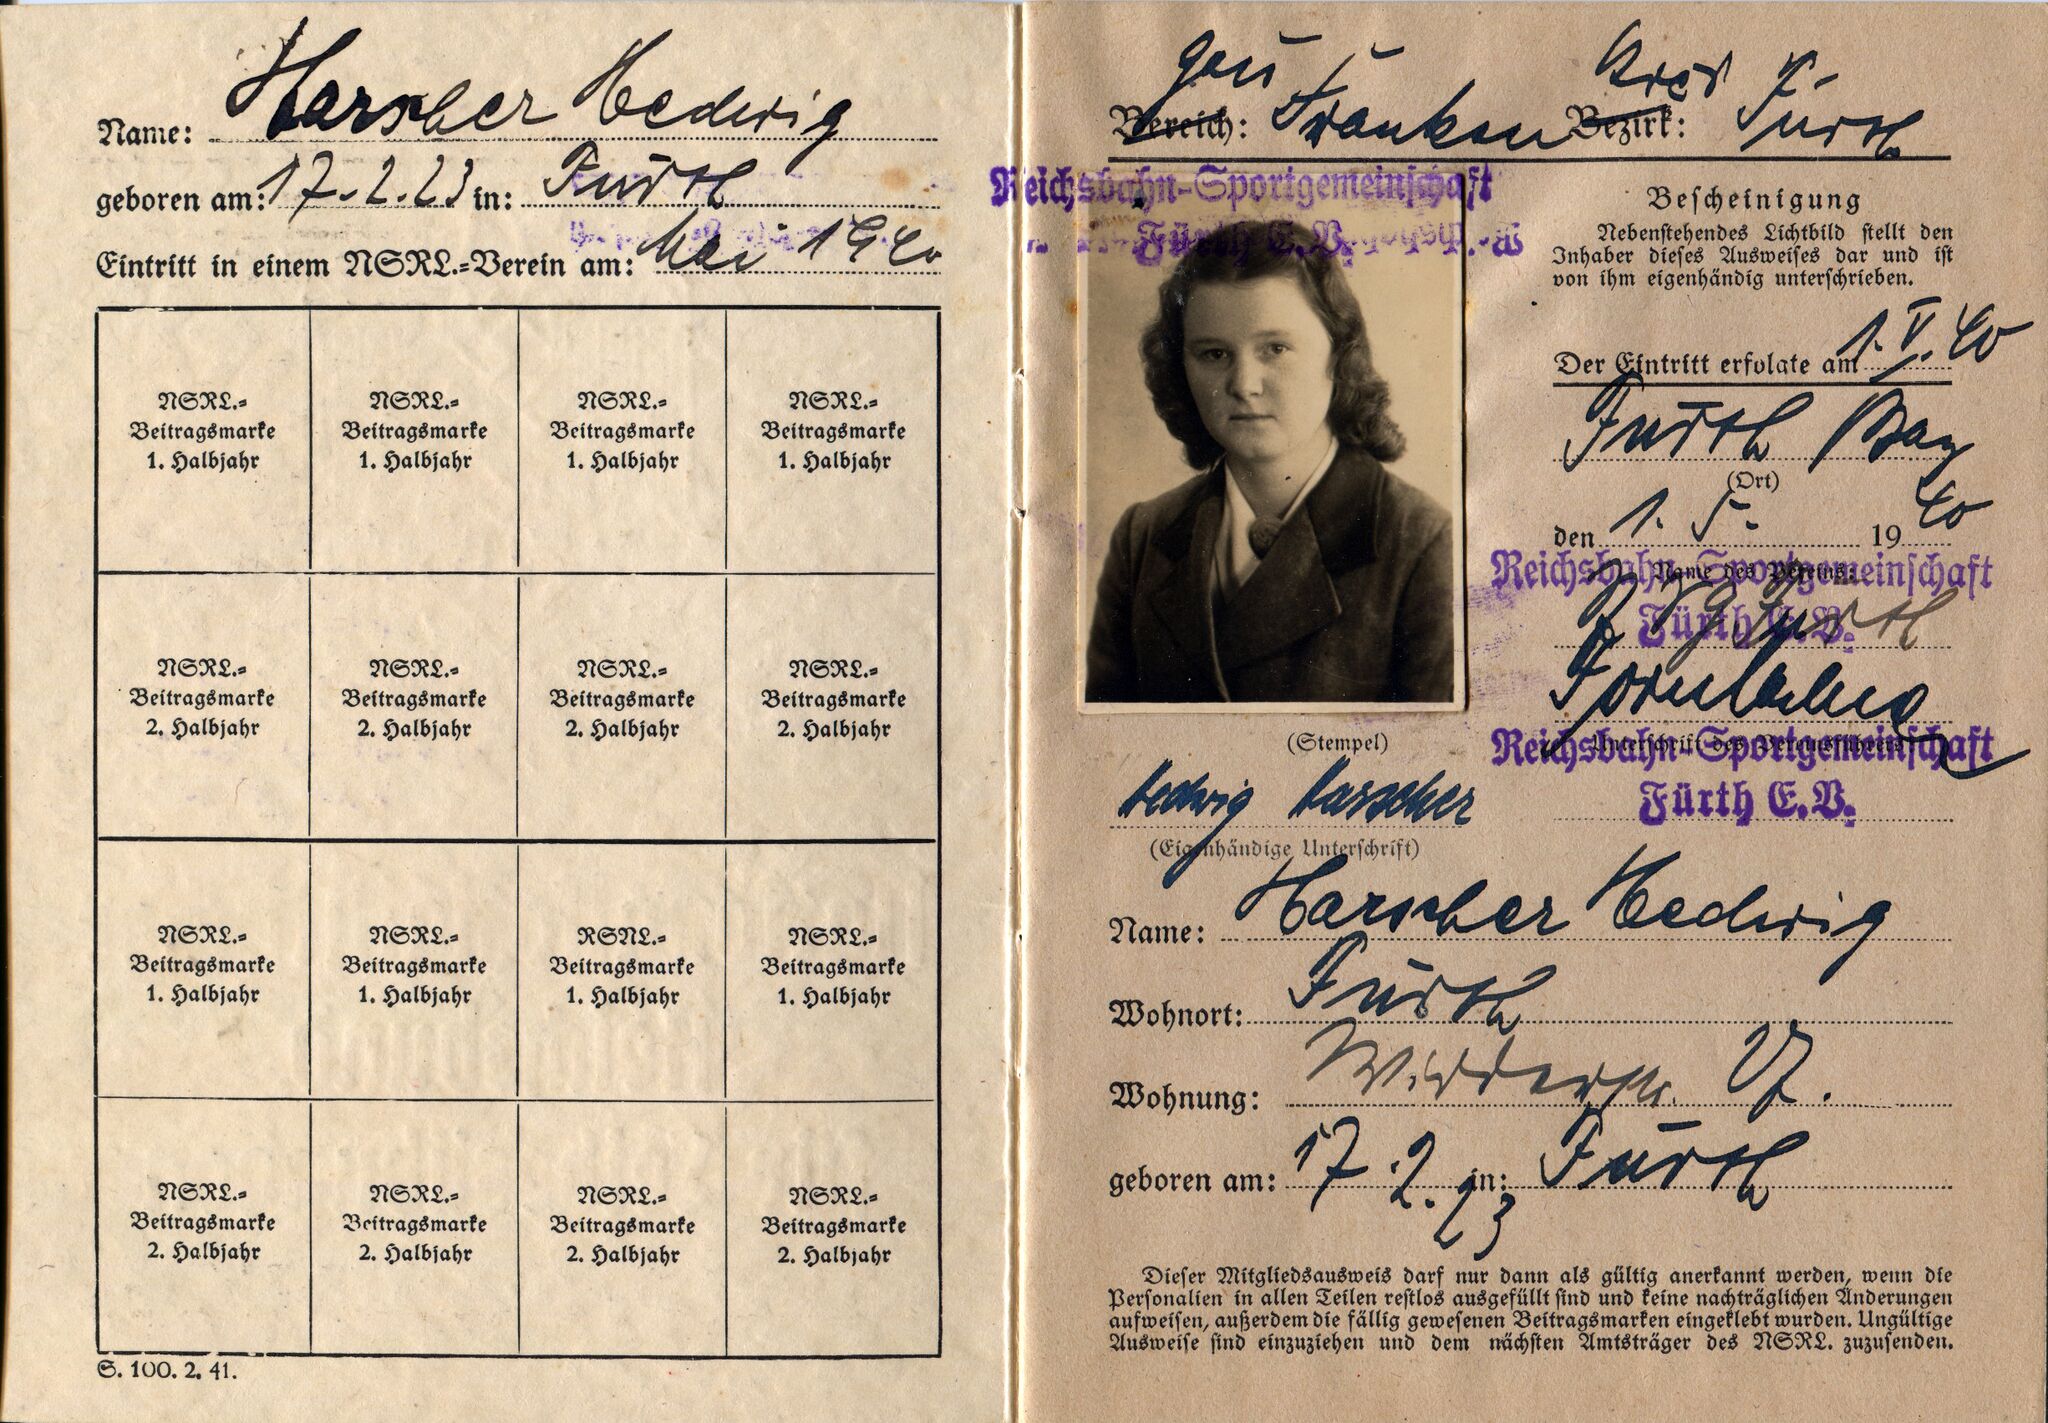 Name: Harscher Hedwig
geboren am: 17.2.23 in: Fürth
Eintritt in einem NSRL.-Verein am: Mai 1940
NSRL.- NSRL.- NSRL.- NSRL.-
Beitragsmarke Beitragsmarke Beitragsmarke Beitragsmarke
1. Halbjahr 1. Halbjahr 1. Halbjahr 1. Halbjahr
NSRL.- NSRL.- NSRL.- NSRL.-
Beitragsmarke Beitragsmarke Beitragsmarke Beitragsmarke
2. Halbjahr 2. Halbjahr 2. Halbjahr 2. Halbjahr
NSRL.- NSRL.- RSNL.- NSRL.-
Beitragsmarke Beitragsmarke Beitragsmarke Beitragsmarke
1. Halbjahr 1. Halbjahr 1. Halbjahr 1. Halbjahr
NSRL.- NSRL.- NSRL.- NSRL.-
Beitragsmarke Beitragsmarke Beitragsmarke Beitragsmarke
2. Halbjahr 2. Halbjahr 2. Halbjahr 2. Halbjahr
S. 100. 2. 41.
Gau Kreis
Bereich: Franken Bezirk: Fürth
Reichsbahn-Sportgemeinschaft
Fürth E.V.
Bescheinigung
Nebenstehendes Lichtbild stellt den
Inhaber dieses Ausweises dar und ist
von ihm eigenhändig unterschrieben.
Der Eintritt erfolgte am 1. V. 40
Fürth Bay
(Ort)
den 1. 5. 1940
Name des Vereins:
Reichsbahn-Sportgemeinschaft
Fürth E.V.
Fürth
Unterschrift des Vereinsführers
Reichsbahn-Sportgemeinschaft
Fürth E.V.
(Stempel)
Hedwig Harscher
(Eigenhändige Unterschrift)
Name: Harscher Hedwig
Wohnort: Fürth
Wohnung:
geboren am: 17.2.23 in: Fürth
Dieser Mitgliedsausweis darf nur dann als gültig anerkannt werden, wenn die
Personalien in allen Teilen restlos ausgefüllt sind und keine nachträglichen Änderungen
aufweisen, außerdem die fällig gewesenen Beitragsmarken eingeklebt wurden. Ungültige
Ausweise sind einzuziehen und dem nächsten Amtsträger des NSRL. zuzusenden.